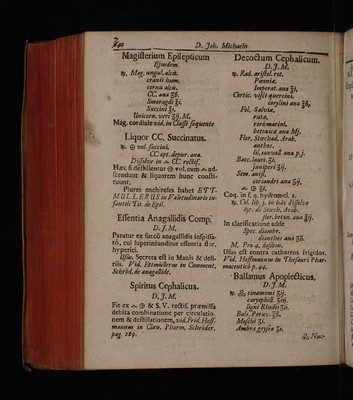 740 D. Joh. Michaelis
Magisterium Epilepticum
Ejusdem.
℞. Mag. ungul. alcis.
cranii hum.
cornu alcis.
CC. ana ʒß.
Smaragdi ʒi.
Succini ʒi.
Unicorn. veri ʒij. M.
Mag. cordiale vid. in Classe sequente
Liquor CC. Succinatus.
℞. vol. succini.
CC. opt. depur. ana.
Dissolve in CC. rectif.
Hæc si destillentur vol. cum ad-
scendunt & liquorem hunc consti-
tuunt.
Plures enchireses habet ETT-
MULLERUS in Valetudinario in-
fantili Tit. de Epil.
Essentia Anagallidis Comp.
D. J. M.
Paratur ex succô anagallidis inspissa-
tô, cui superinfunditur essentia flor.
hyperici.
Usus. Secreta est in Maniâ & deli-
riis. Vid. Etmüllerus in Comment.
Schröd. de anagallide.
Spiritus Cephalicus.
D. J. M.
Fit ex & S. V. rectif. præmissâ
debita combinatione per circulatio-
nem & destillationem, vid. Frid. Hoff-
mannus in Clav. Pharm. Schröder.
pag. 289.
Decoctum Cephalicum.
D. J. M.
℞. Rad. aristol. rot.
Pæoniæ.
Imperat. ana ʒi.
Cortic. visci quercini.
corylini ana ʒß,
Fol. Salviæ,
rutæ,
rorismarini,
betonicæ ana Mj.
Flor. Stœchad. Arab.
anthos,
til. ana p. j.
Bacc. lauri. ʒi.
juniperi ʒij.
Sem. anisi,
coriandri ana ʒij.
ʒi.
Coq. in s. q. hydromel. s.
℞. Col. lib. j. in hâc dissolve
syr. de Stœch. Arab.
flor. beton. ana ʒij.
In clarificatione adde
Spec. diambr.
dianthus ana ʒß.
M. Pro 4. dosibus.
Usus est contra catharros frigidos.
Vid. Hoffmannus in Thesauro Phar-
maceutico p. 44.
Balsamus Apoplecticus.
D. J. M.
℞. cinamomi ʒij.
caryophill. ʒiij.
ligni Rhodii ʒii.
Bals. Peruv. ʒß.
Moschi ʒi.
Ambræ gryseæ ʒi.
Nuc-